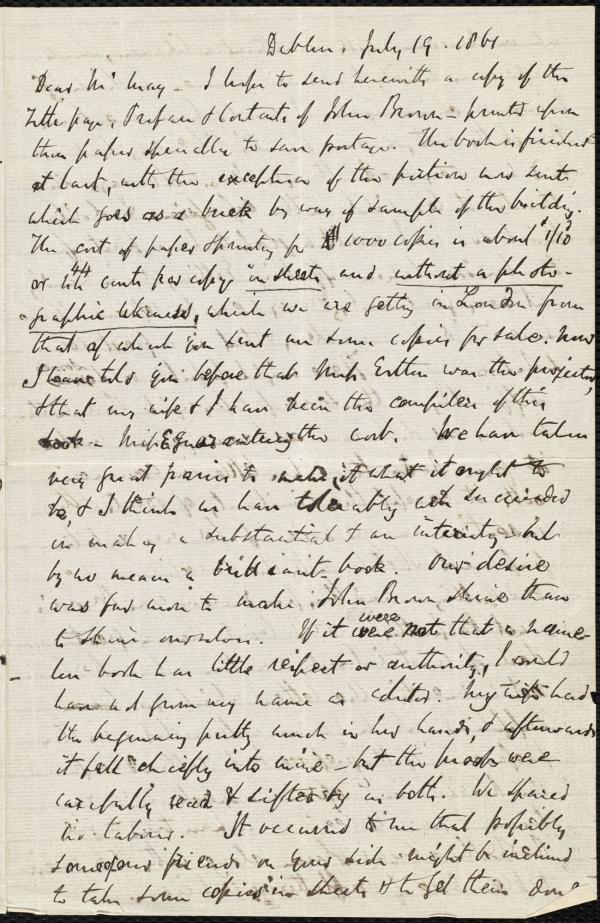 Dublin, July 19. 1861
Dear Mr May – I hope to send herewith a copy of the
Title page, Preface & Contents of John Brown – printed upon
thin paper specially to save postage. The book is finished
at last, with the exception of the portion now sent
which goes as a brick by way of sample of the building.
The cost of paper & printing for 1000 copies is about 1/10
or 44 cents per copy in sheets and without a photo-
graphic likeness, which we are getting in London from
that of which you sent me some copies for sale. Now
I have told you before that Miss Estlin was the projector,
& that my wife & I have been the compilers of this
book – Miss E. the cost. We have taken
very great pains to make it what it ought to
be, & I think we have tolerably well succeeded
in making a substantial & an interesting – but
by no means a brilliant book. Our desire
was far more to make John Brown shine than
to shine ourselves. If it were not that a name-
less book has little respect or authority, I would
have my name as editor. My wife had
the beginning pretty much in her hands, & afterwards
it fell chiefly into mine – but the proofs were
carefully read & sifted by us both. We spared
no labour. It occurred to me that possibly
some of our friends on your side might be inclined
to take some copies in sheets & to get them done